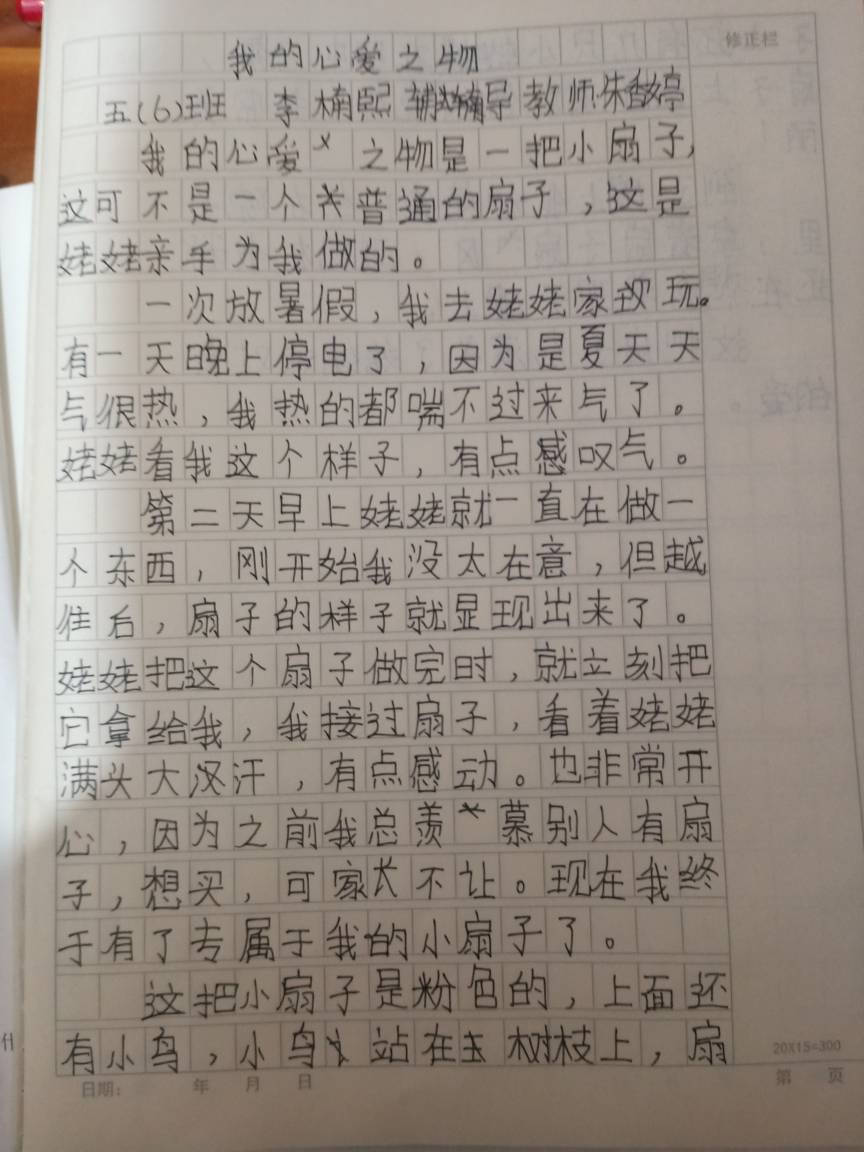 我的心爱之物
修正栏
五(6)班 李楠熙 辅导教师:朱香婷
我的心爱之物是一把小扇子,
这可不是一个普通的扇子,这是
姥姥亲手为我做的。
一次放暑假,我去姥姥家玩。
有一天晚上停电了,因为是夏天天
气很热,我热的都喘不过来气了。
姥姥看我这个样子,有点感叹气。
第二天早上姥姥就一直在做一
个东西,刚开始我没太在意,但越
往后,扇子的样子就显现出来了。
姥姥把这个扇子做完时,就立刻把
它拿给我,我接过扇子,看着姥姥
满头大汉汗,有点感动。也非常开
心,因为之前我总羡慕别人有扇
子,想买,可家长不让。现在我终
于有了专属于我的小扇子了。
这把小扇子是粉色的,上面还
有小鸟,小鸟站在树枝上,扇
20X15=300
日期: 年 月 日
第 页